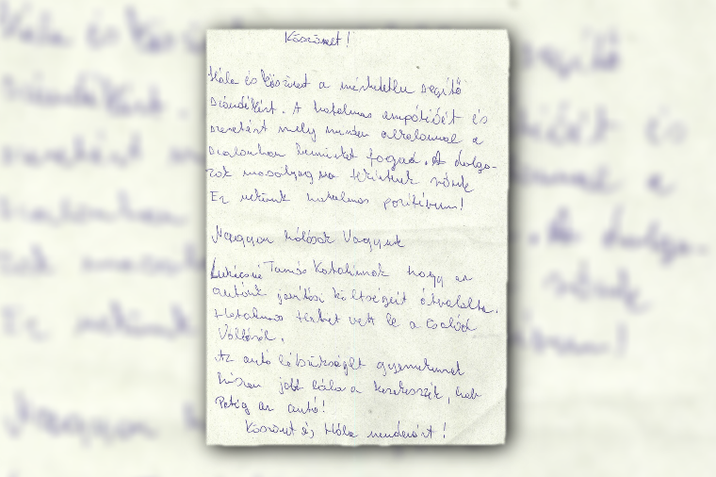 Köszönet!
Hála és köszönet a mérhetetlen segítő
szándékért. A hatalmas empátiáért és
szeretetért mely minden alkalommal a
szalonban bennünket fogad. A dolgo-
zók mosolyogva tekintenek
Ez nekünk hatalmas pozitívum!
Nagyon hálásak Vagyunk
Tamás Katalinnak hogy az
autónk javítási költségeit átvállalta.
Hatalmas terhet vett le a család
Válláról.
Az autó létszükséglet gyermekünknek
hiszen jobb lába a kerekesszék, bal
Pedig az autó!
Köszönet és Hála mindezért!